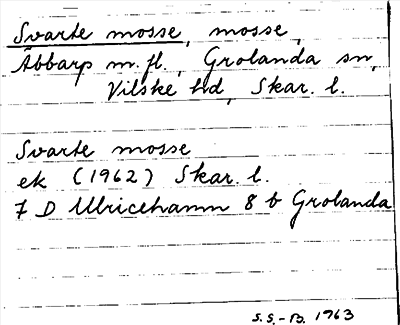 Svarte mosse, mosse,
Åbbarp m. fl., Grolanda sn,
Vilske hd, Skar. l.
Svarte mosse
ek (1962) Skar. l.
7 D Ulricehamn 8 b Grolanda
S.S.-B. 1963